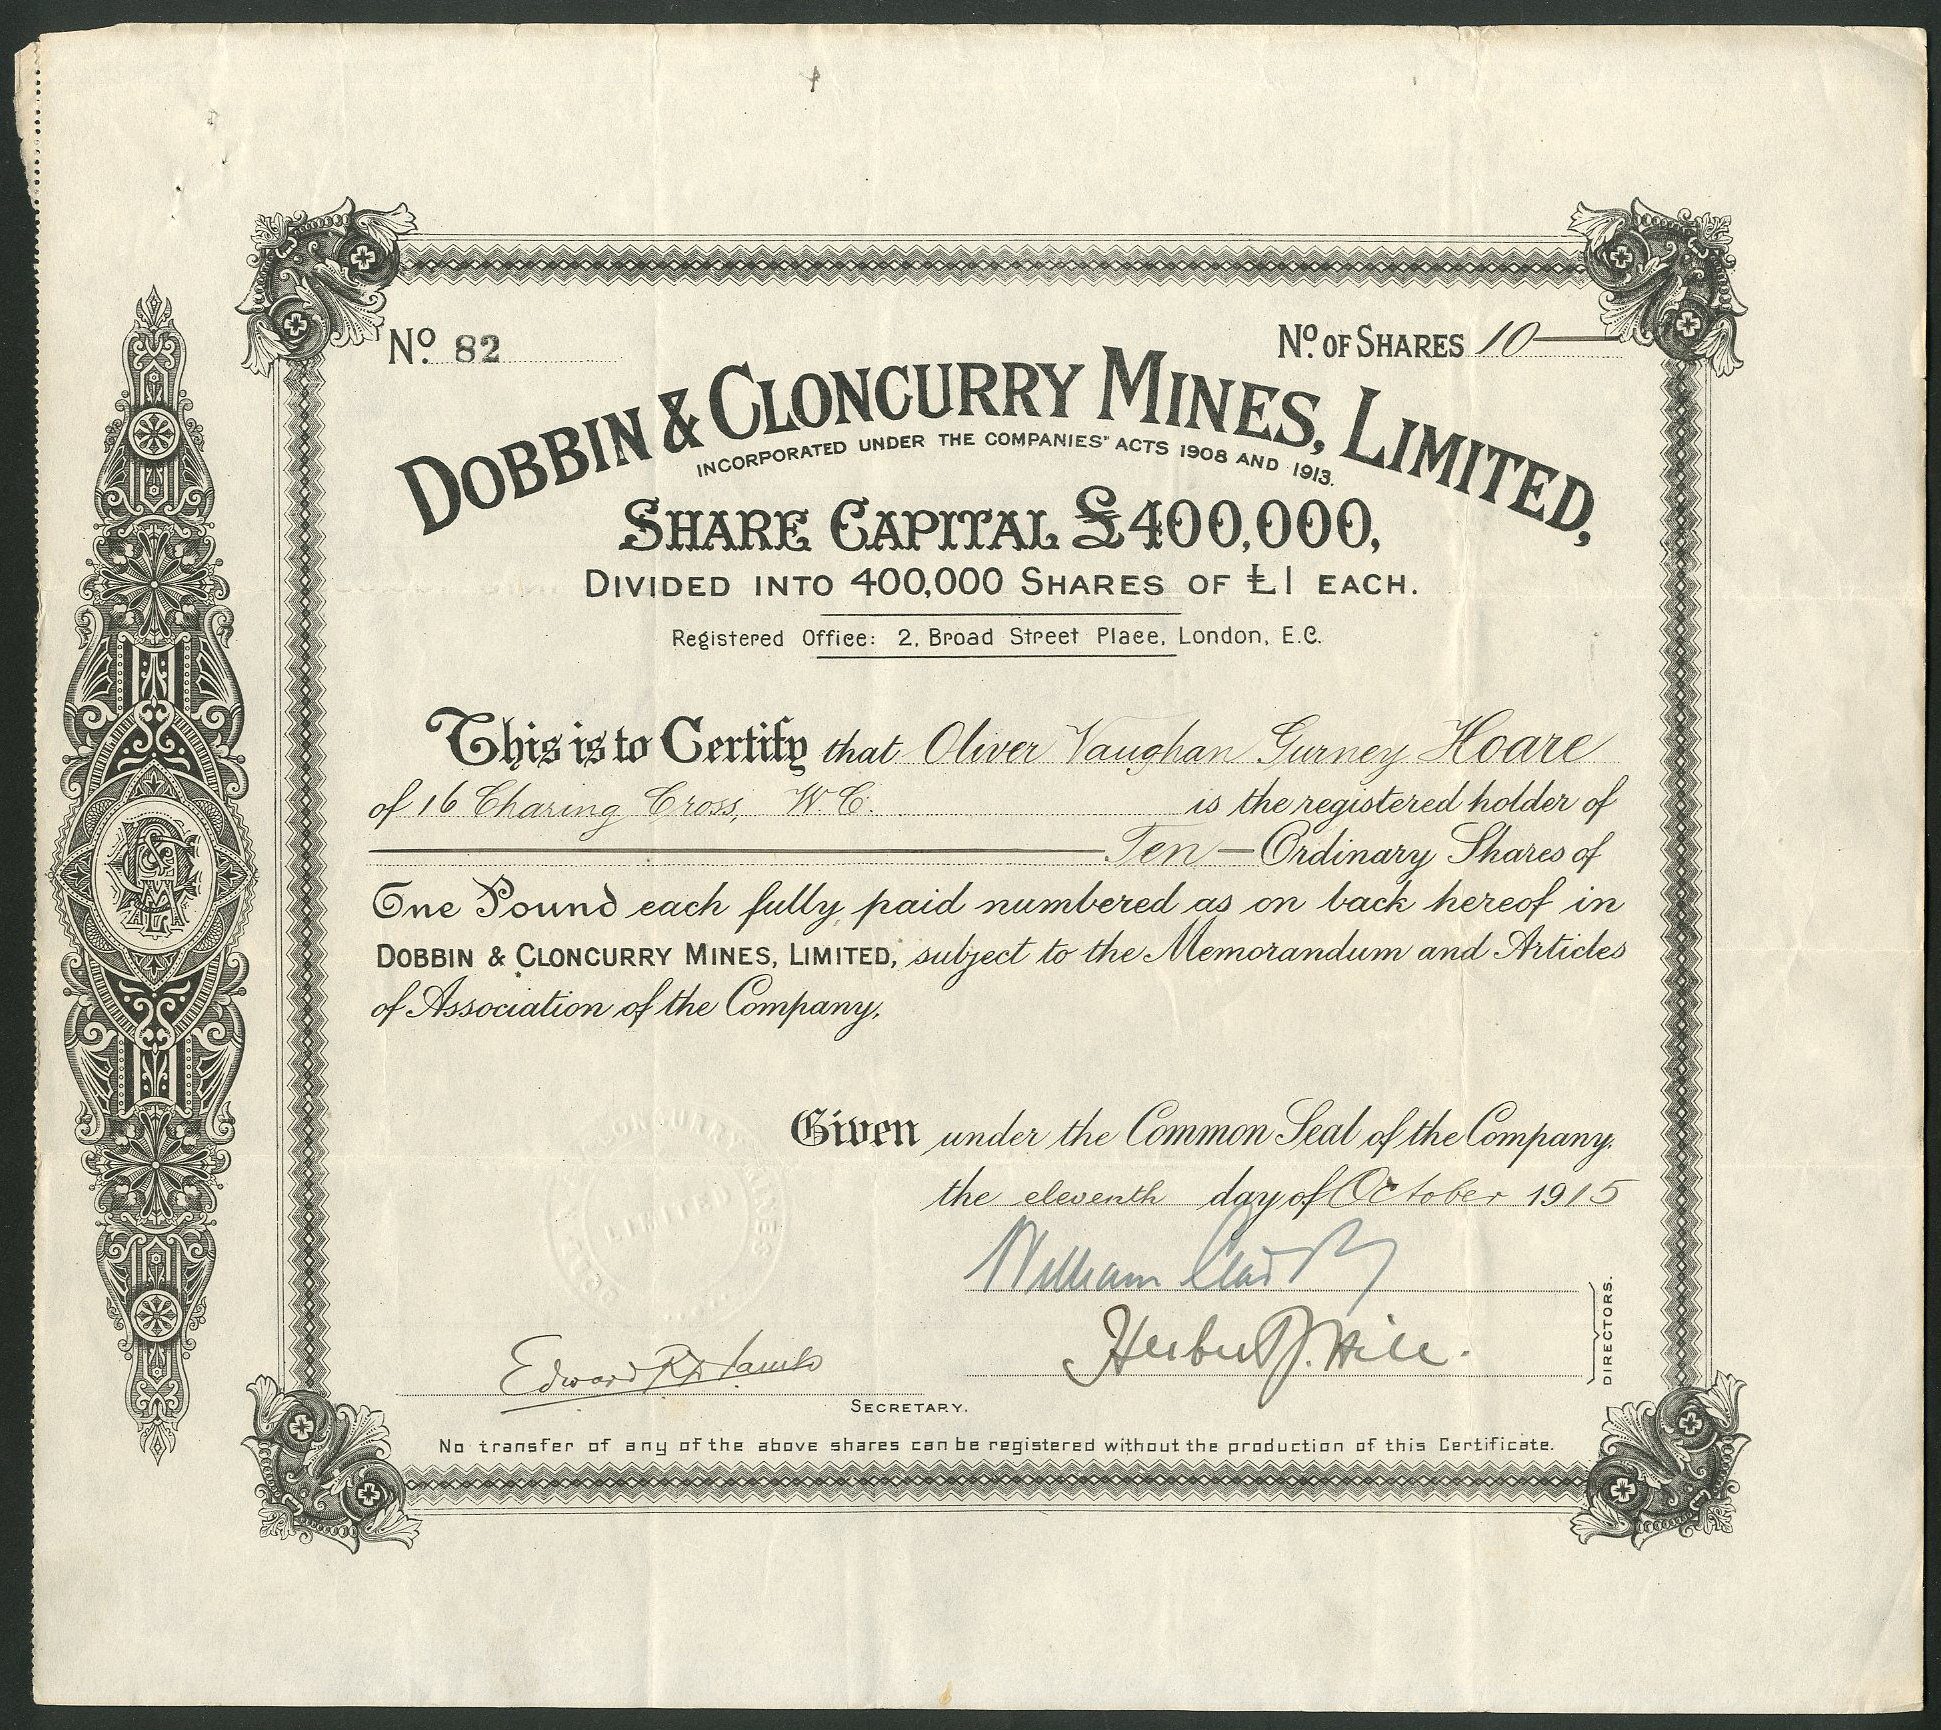 No. 82
No. OF SHARES 10
DOBBIN & CLONCURRY MINES, LIMITED,
INCORPORATED UNDER THE COMPANIES' ACTS 1908 AND 1913.
SHARE CAPITAL £400,000,
DIVIDED INTO 400,000 SHARES OF £1 EACH.
Registered Office: 2, Broad Street Place, London, E.C.
This is to Certify that Oliver Vaughan Gurney Hoare
of 16 Charing Cross, W.C. is the registered holder of
Ten Ordinary Shares of
One Pound each fully paid numbered as on back hereof in
DOBBIN & CLONCURRY MINES, LIMITED, subject to the Memorandum and Articles
of Association of the Company.
Given under the Common Seal of the Company.
the eleventh day of October 1915
William
Herbert J. Hill.
DIRECTORS.
Edward
SECRETARY.
No transfer of any of the above shares can be registered without the production of this Certificate.
CLONCURRY MINES
LIMITED